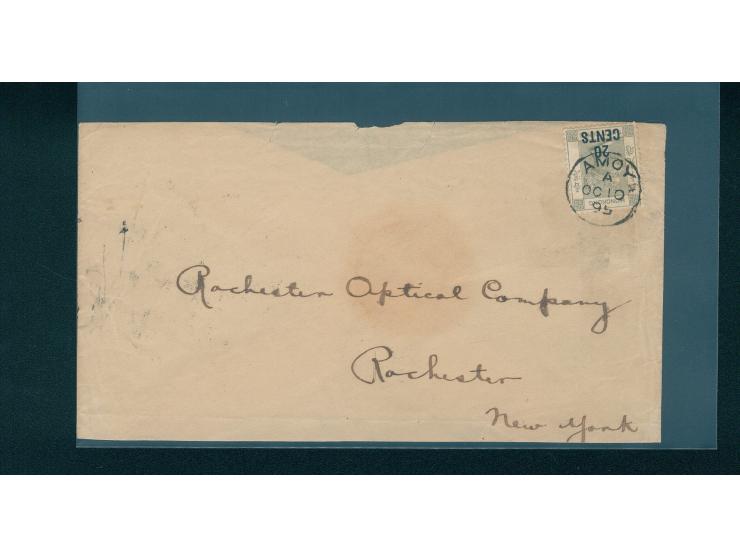 20
CENTS
HONG KONG
AMOY
A
OC 10
95
Rochester Optical Company
Rochester
New York